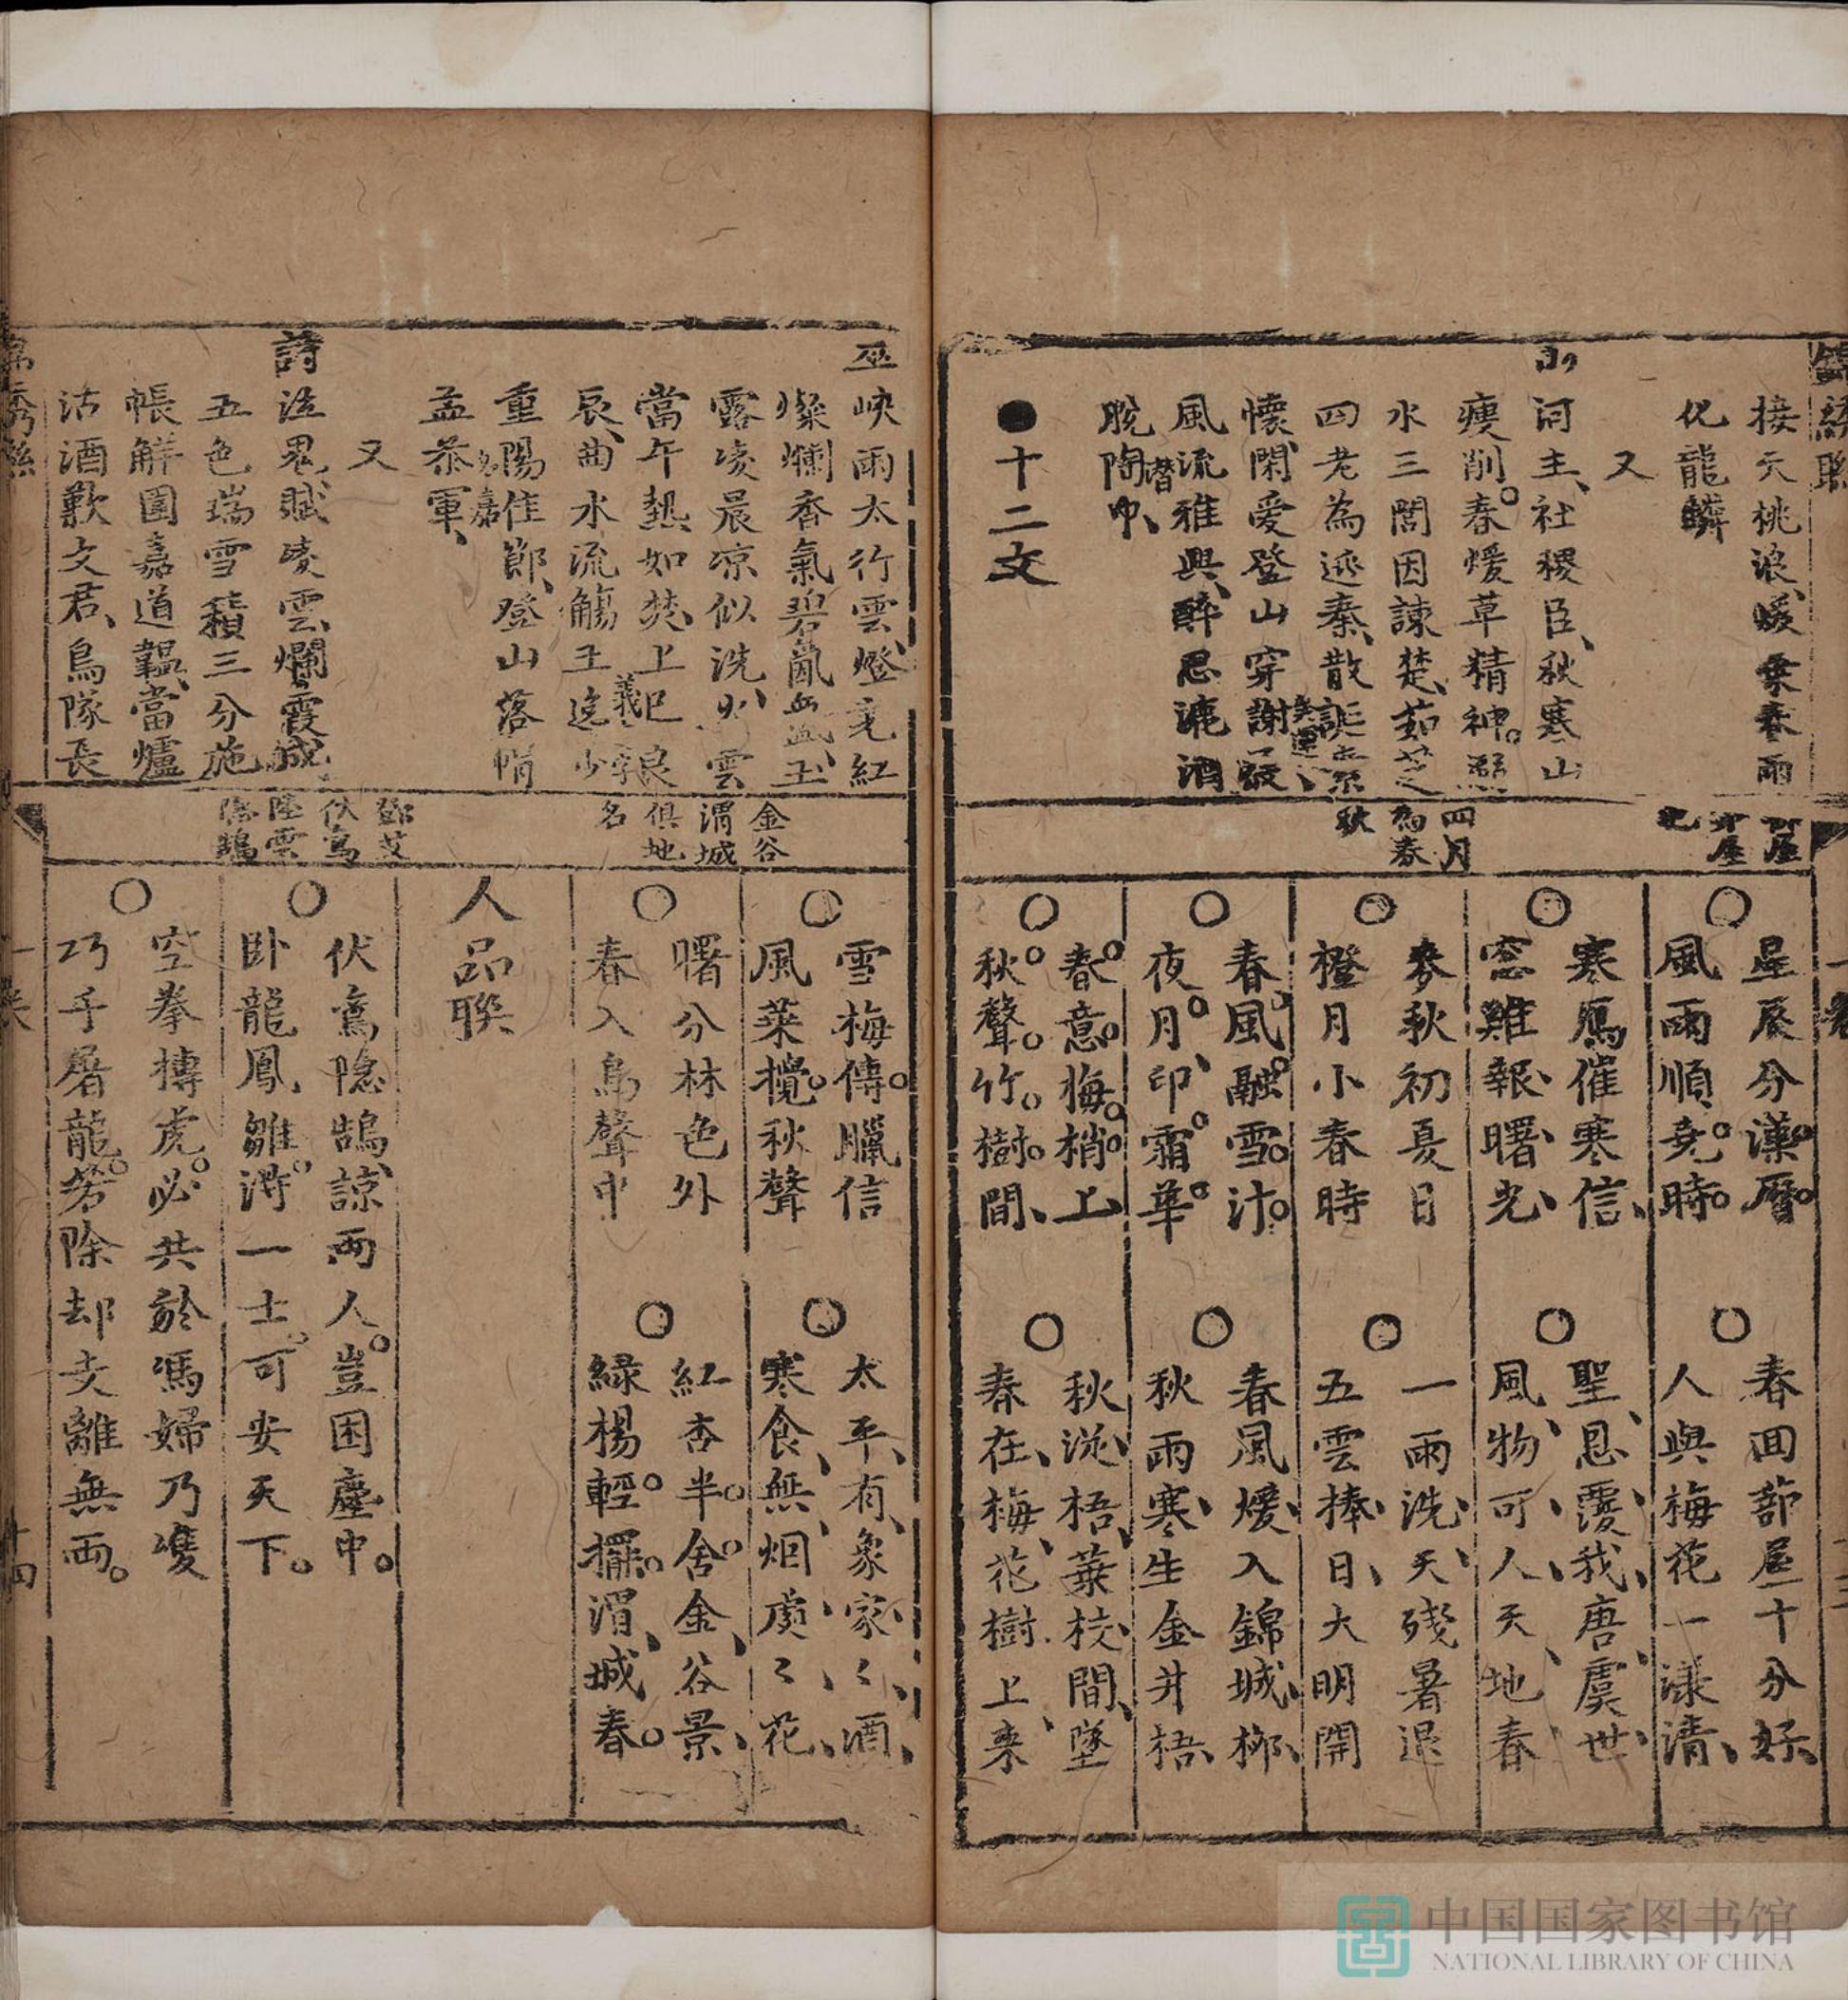 接天桃浪暖乗春雨
化龍鱗
又
詞主社稷臣秋寒山
瘦削春煖草精神
水三閭因諫楚茹芝
四老為逃秦散誕
懷閑愛登山穿謝屐
風流雅興醉忍漉酒
脫陶潜巾
●十二文
四月
為春
秋
星辰分漢曆
風雨順堯時
寒鴈催寒信
窓雞報曙光
麥秋初夏日
橙月小春時
春風融雪汁
夜月印霜華
春意梅梢上
秋聲竹樹間
春囬蔀屋十分好
人與梅花一漾清
聖恩覆我唐虞世
風物可人天地春
一雨洗天殘暑退
五雲捧日大明開
春風煖入錦城柳
秋雨寒生金井梧
秋從梧葉枝間墜
春在梅花樹上来
巫峽雨太行雲燈毫紅
燦爛香氣碧氤氳玉
露凌晨凉似洗火雲
當年熱如焚上巳良
辰曲水流觴王逸少
羲之
重陽佳節登山落帽
孟叅軍
嘉
又
詩泣鬼賦凌雲爛霞成
五色瑞雪積三分施
帳解圍嘉道韞當爐
沽酒歎文君烏隊長
金谷
渭城
俱地
名
鄧艾
伏鸞
陸雲
隱鵠
雪梅傳臘信
風葉攪秋聲
曙分林色外
春入鳥聲中
太平有象家〻酒
寒食無烟處〻花
紅杏半舍金谷景
緑楊輕擺渭城春
人品聯
伏鸞隐鵠諒兩人豈困塵中
卧龍鳳雛淂一士可安天下
空拳摶虎必共於馮婦乃雙
巧手屠龍苐除却支離無兩